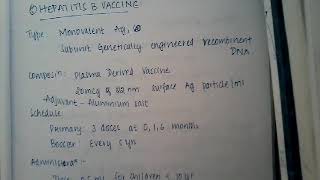 HEPATITIS B VACCINE
Type: Monovalent Ag,
Subunit Genetically engineered recombinant
DNA.
Plasma Derived Vaccine
20mcg of 22 nm surface Ag particle/ml
-Adjuvant - Aluminium salt
Schedule:
Primary: 3 doses at 0,1,6 months
Booster: Every 5 yrs
for children <